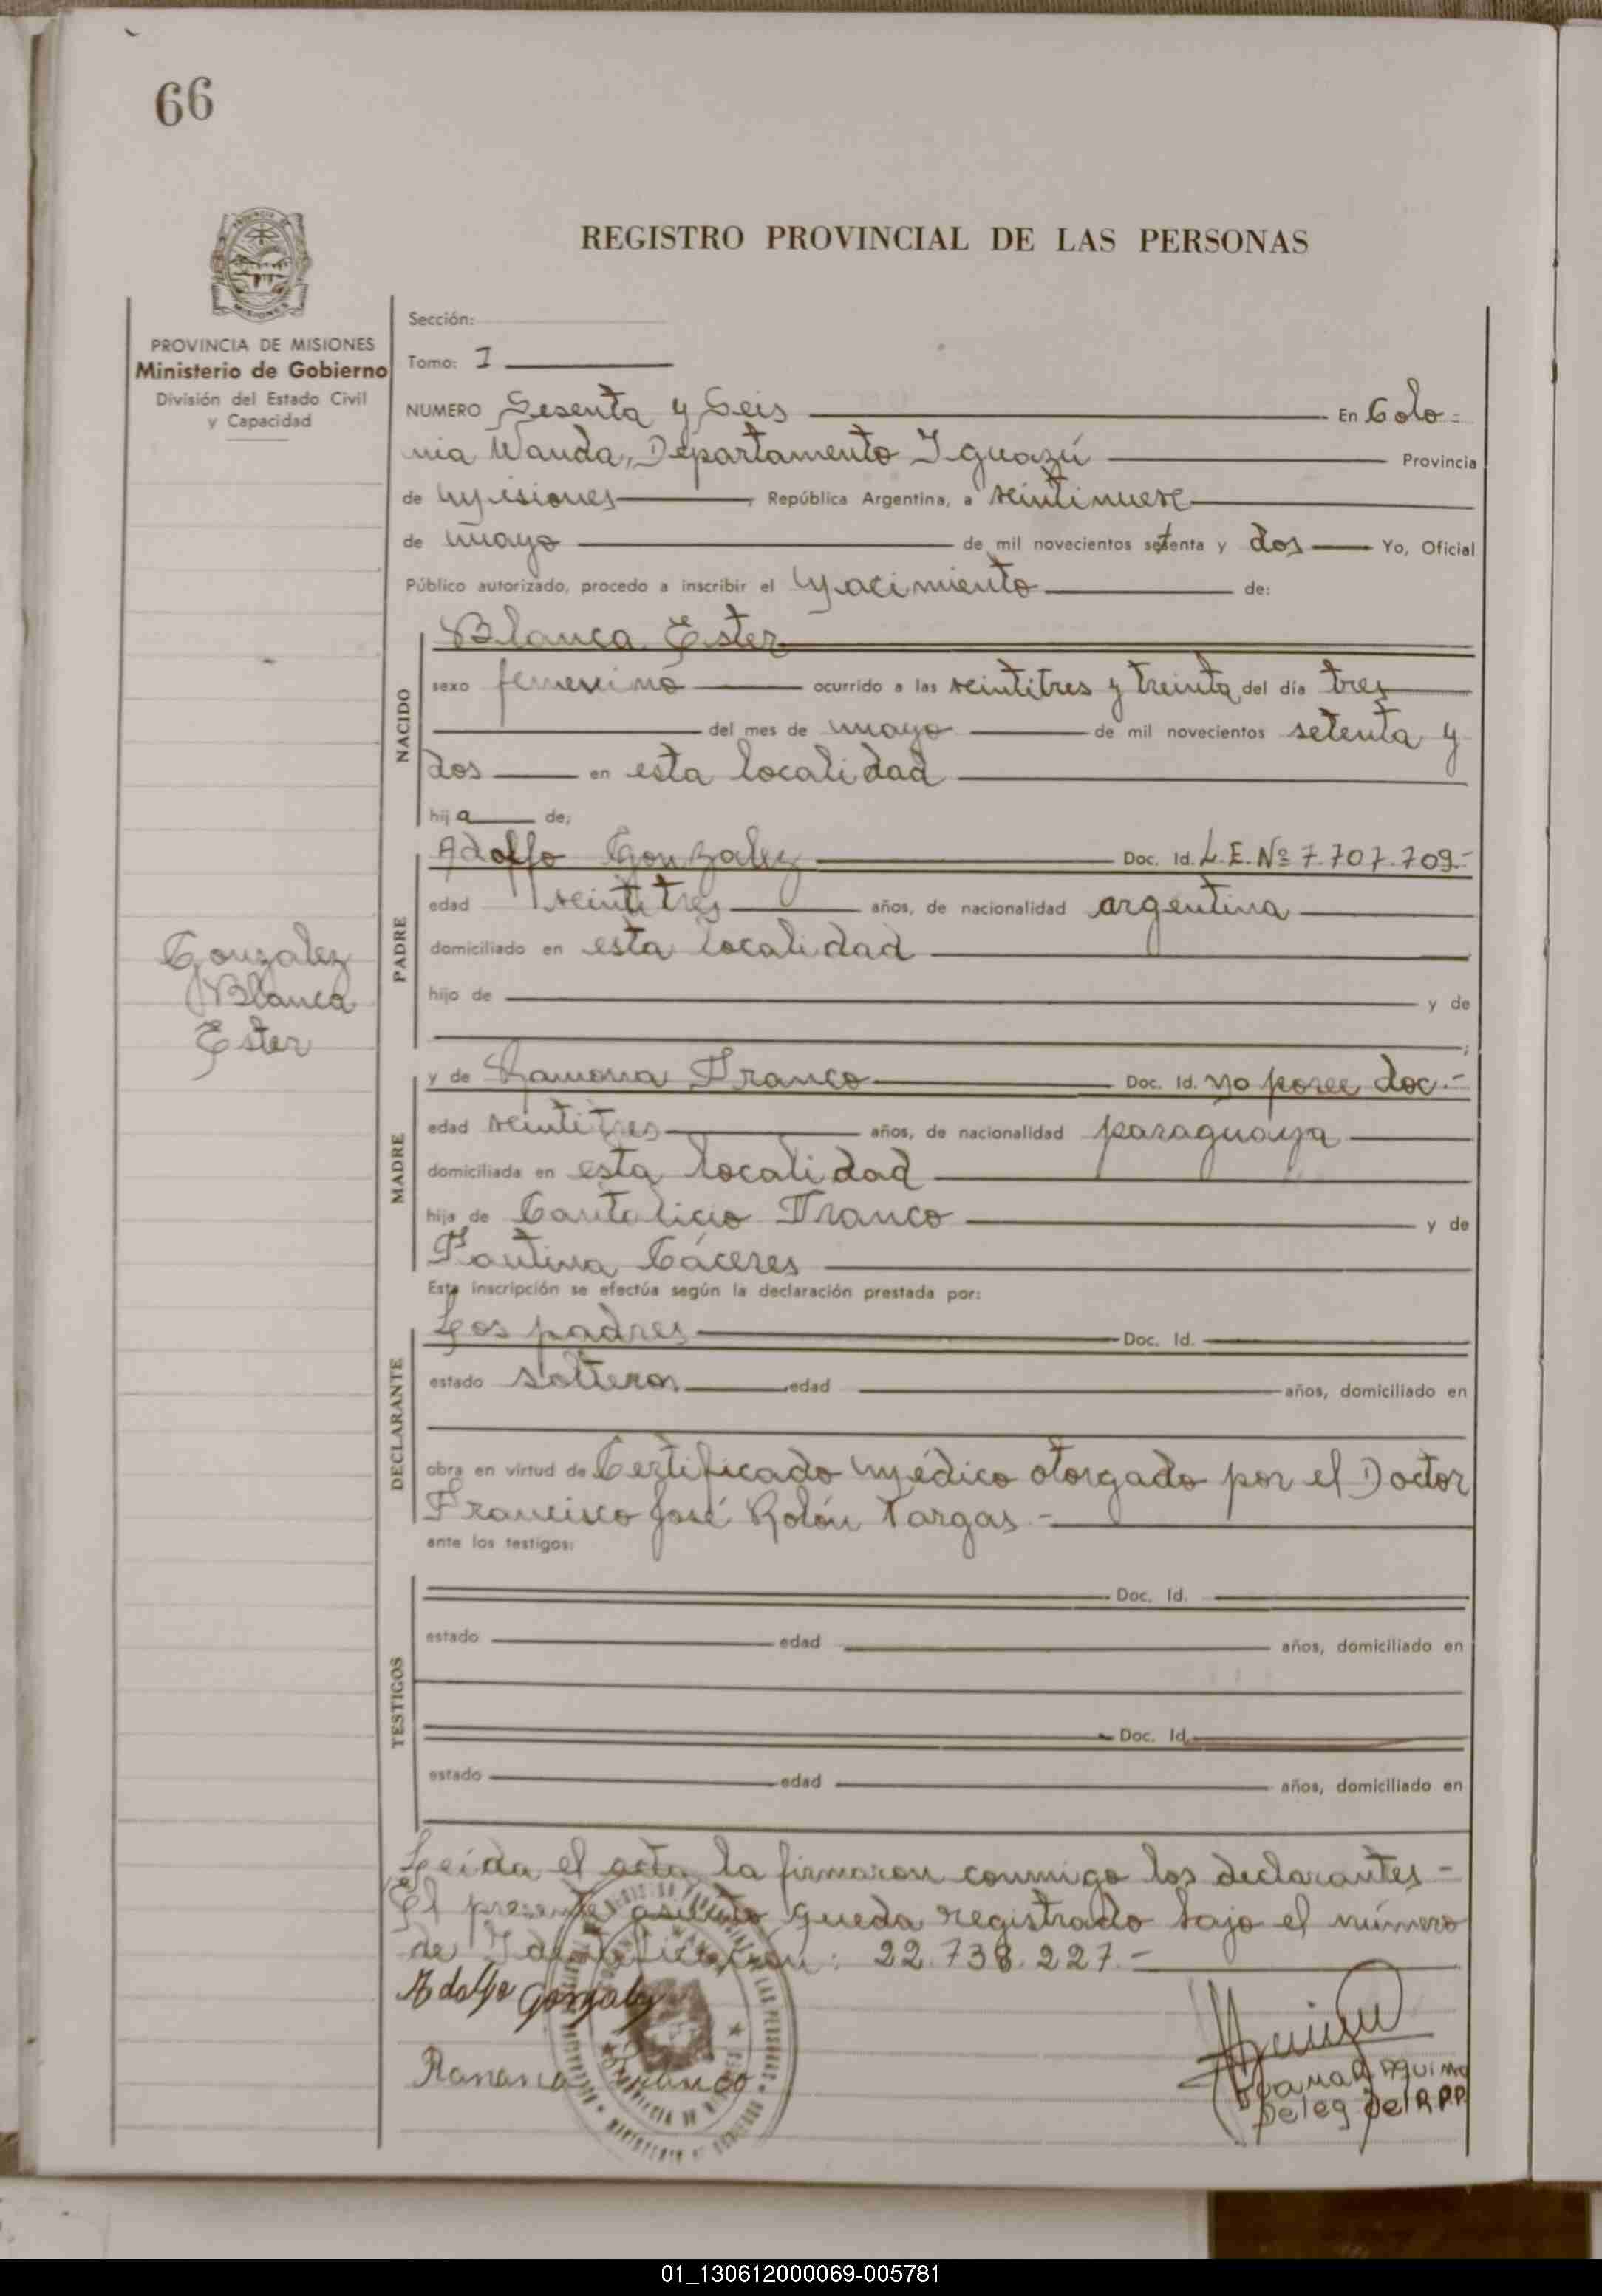 66
REGISTRO PROVINCIAL DE LAS PERSONAS
PROVINCIA DE MISIONES
Ministerio de Gobierno
División del Estado Civil
y Capacidad
Sección:
Tomo: I
NUMERO Sesenta y Seis En Colo=
nia Wanda, Departamento Iguazú Provincia
de Misiones, República Argentina, a veintinueve
de mayo de mil novecientos setenta y dos Yo, Oficial
Público autorizado, procedo a inscribir el Nacimiento de:
NACIDO
Blanca Ester
sexo femenino ocurrido a las veintitres y treinta del día tres
del mes de mayo de mil novecientos setenta y
dos en esta localidad
hija de;
PADRE
Adolfo Gonzalez Doc. Id. L.E. Nº 7.707.709.-
edad veintitres años, de nacionalidad argentina
domiciliado en esta localidad
hijo de y de
;
Gonzalez
Blanca
Ester
MADRE
y de Ramona Franco Doc. Id. no posee doc.-
edad veintitres años, de nacionalidad paraguaya
domiciliada en esta localidad
hija de Cantalicio Franco y de
Fautina Cáceres
Esta inscripción se efectúa según la declaración prestada por:
DECLARANTE
Los padres Doc. Id.
estado solteros edad años, domiciliado en
obra en virtud de Certificado Médico otorgado por el Doctor
Francisco José Rolón Vargas.-
ante los testigos:
TESTIGOS
Doc. Id.
estado edad años, domiciliado en
Doc. Id.
estado edad años, domiciliado en
Leída el acta la firmaron conmigo los declarantes-
El presente asiento queda registrado bajo el número
de Identificación: 22.738.227.-
Adolfo Gonzalez
Ramona Franco
Deleg del R.P.P.
01_130612000069-005781